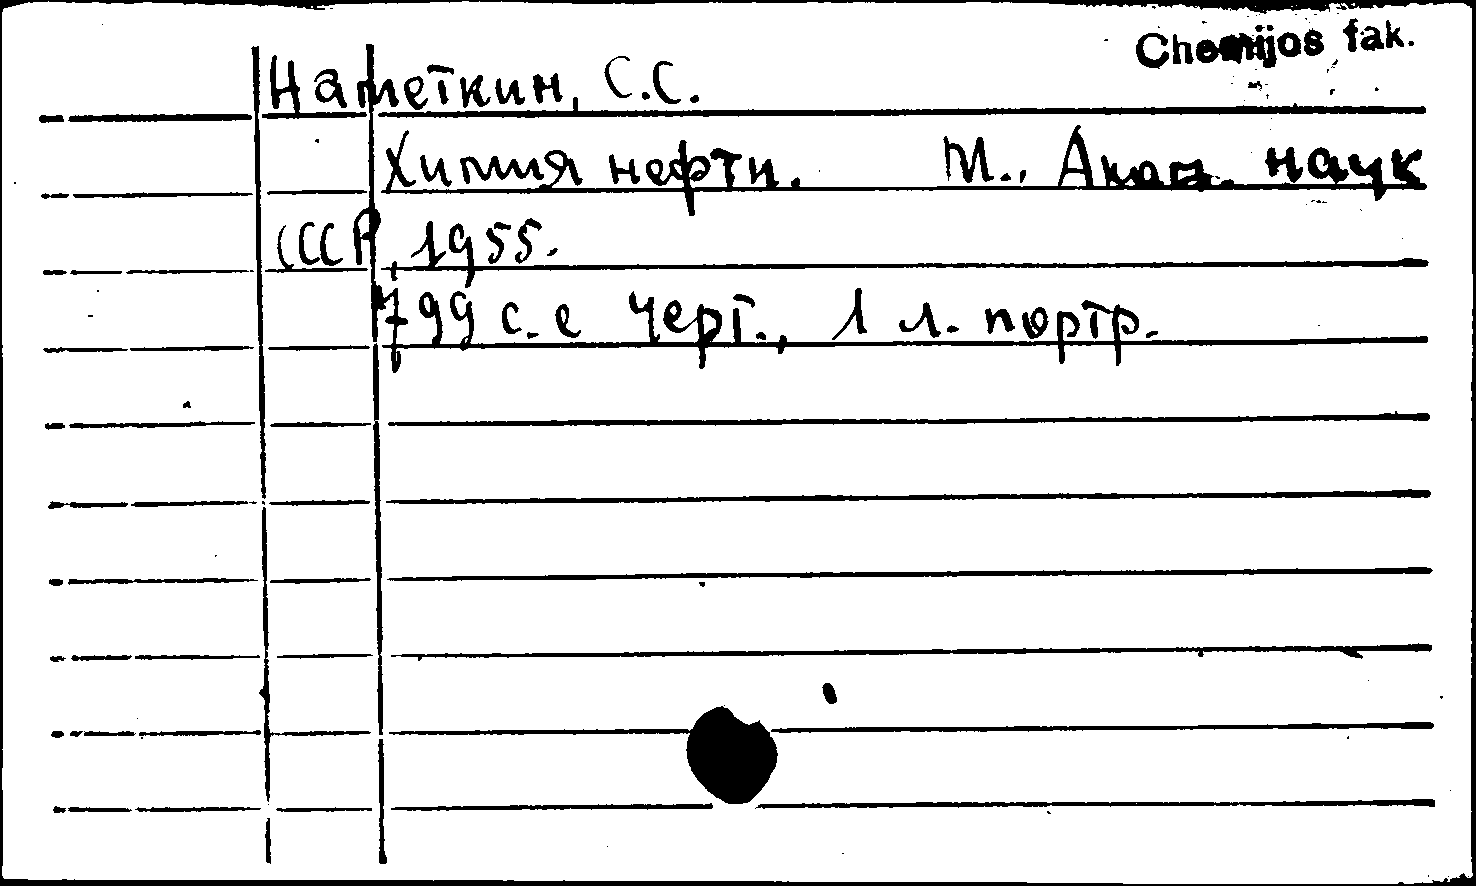 Chemijos fak.
Наметкин, С.С.
Химия нефти. М., Акад. наук
СССР, 1955.
799 с. с черт., 1 л. портр.